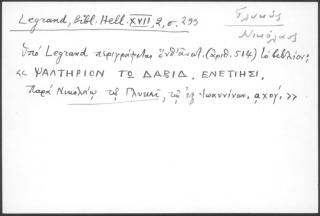 Legrand, Bibl. Hell. XVII, 2, σ. 299
Γλυκύς
Νικόλαος
Ὑπό Legrand περιγράφεται ἐνθ' ἀνωτ. (ἀριθ. 514) τό βιβλίον:
« ΨΑΛΤΗΡΙΟΝ ΤΩ ΔΑΒΙΔ, ΕΝΕΤΙΗΣΙ,
παρά Νικολάῳ τῷ Γλυκεῖ, τῷ ἐξ Ἰωαννίνων, αχογ'. »